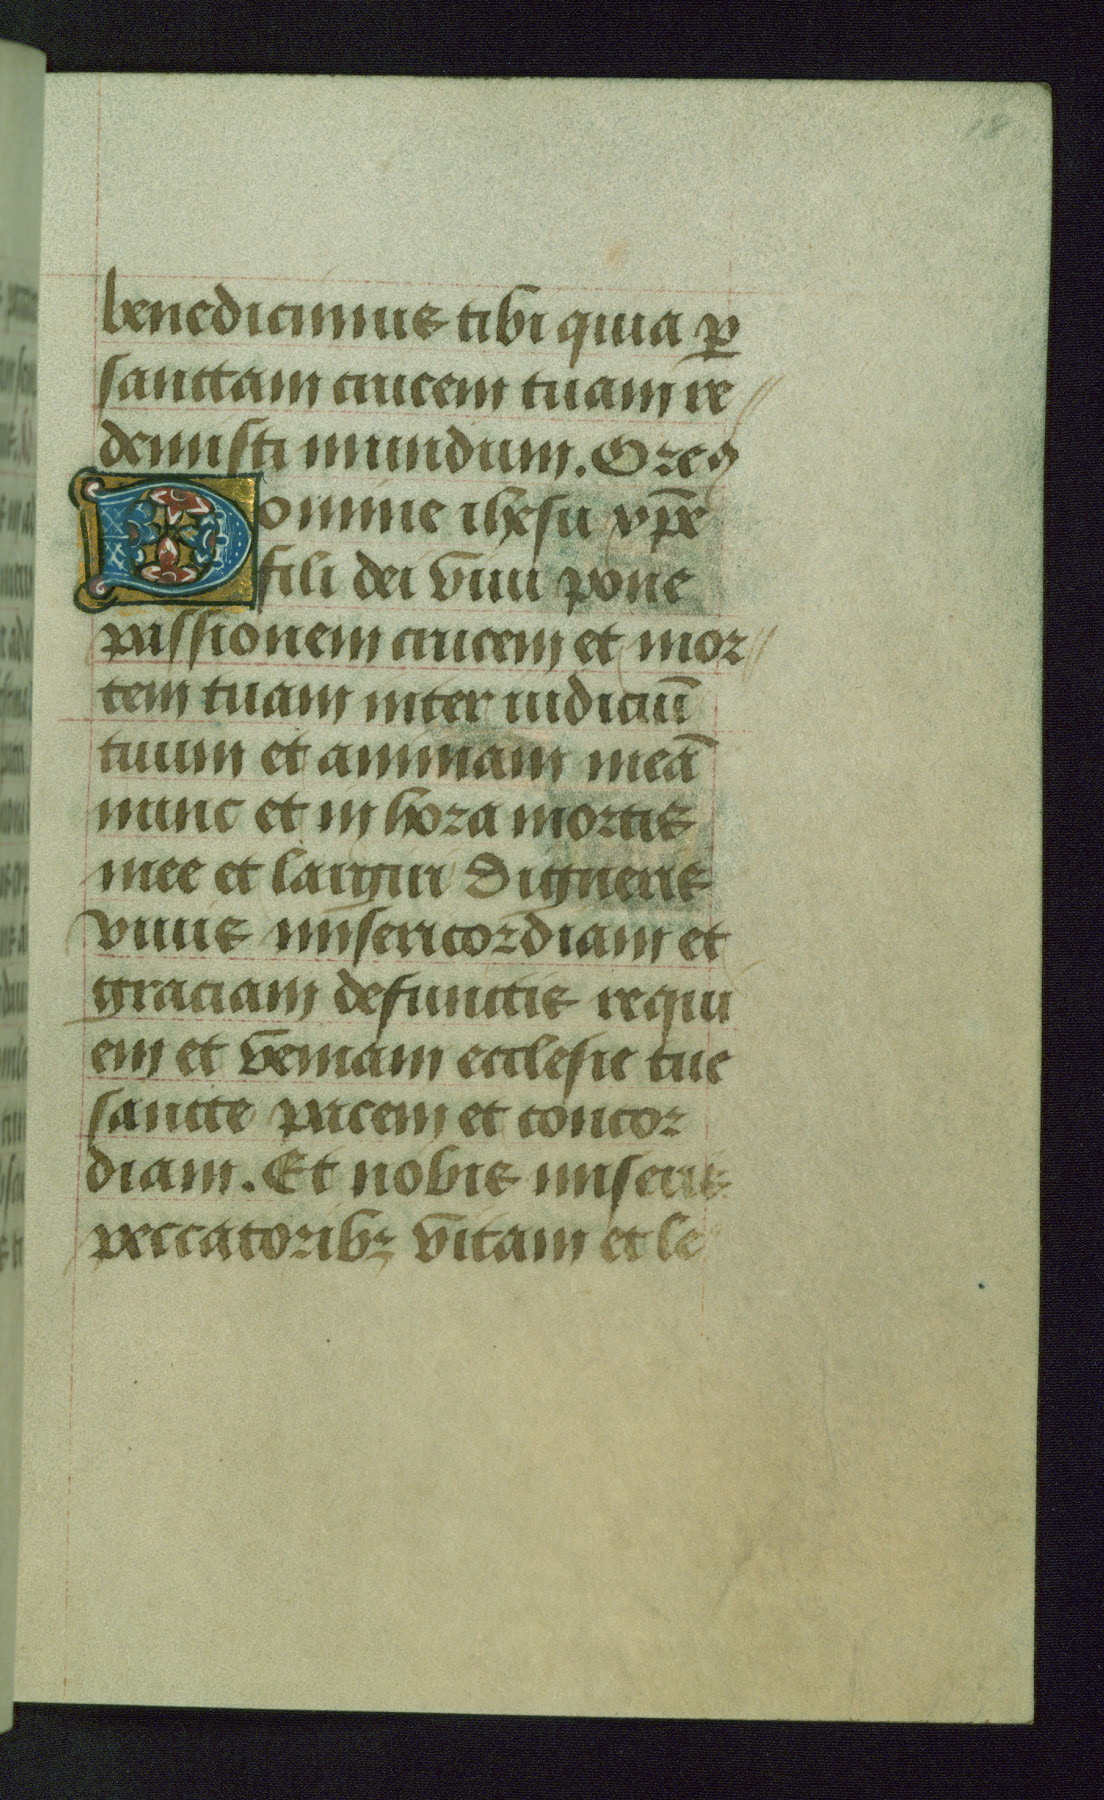 benedicimus tibi quia ꝑ
sanctam crucem tuam re
demisti mundum. Oreꝰ
Domine ihesu xp̄e
fili dei viui pone
passionem crucem et mor
tem tuam inter iudiciū
tuum et animam meā
nunc et in hora mortis
mee et largiri digneris
viuis misericordiam et
graciam defunctis requi
em et veniam ecclesie tue
sancte pacem et concor
diam. Et nobis miseris
peccatoribꝫ vitam et le